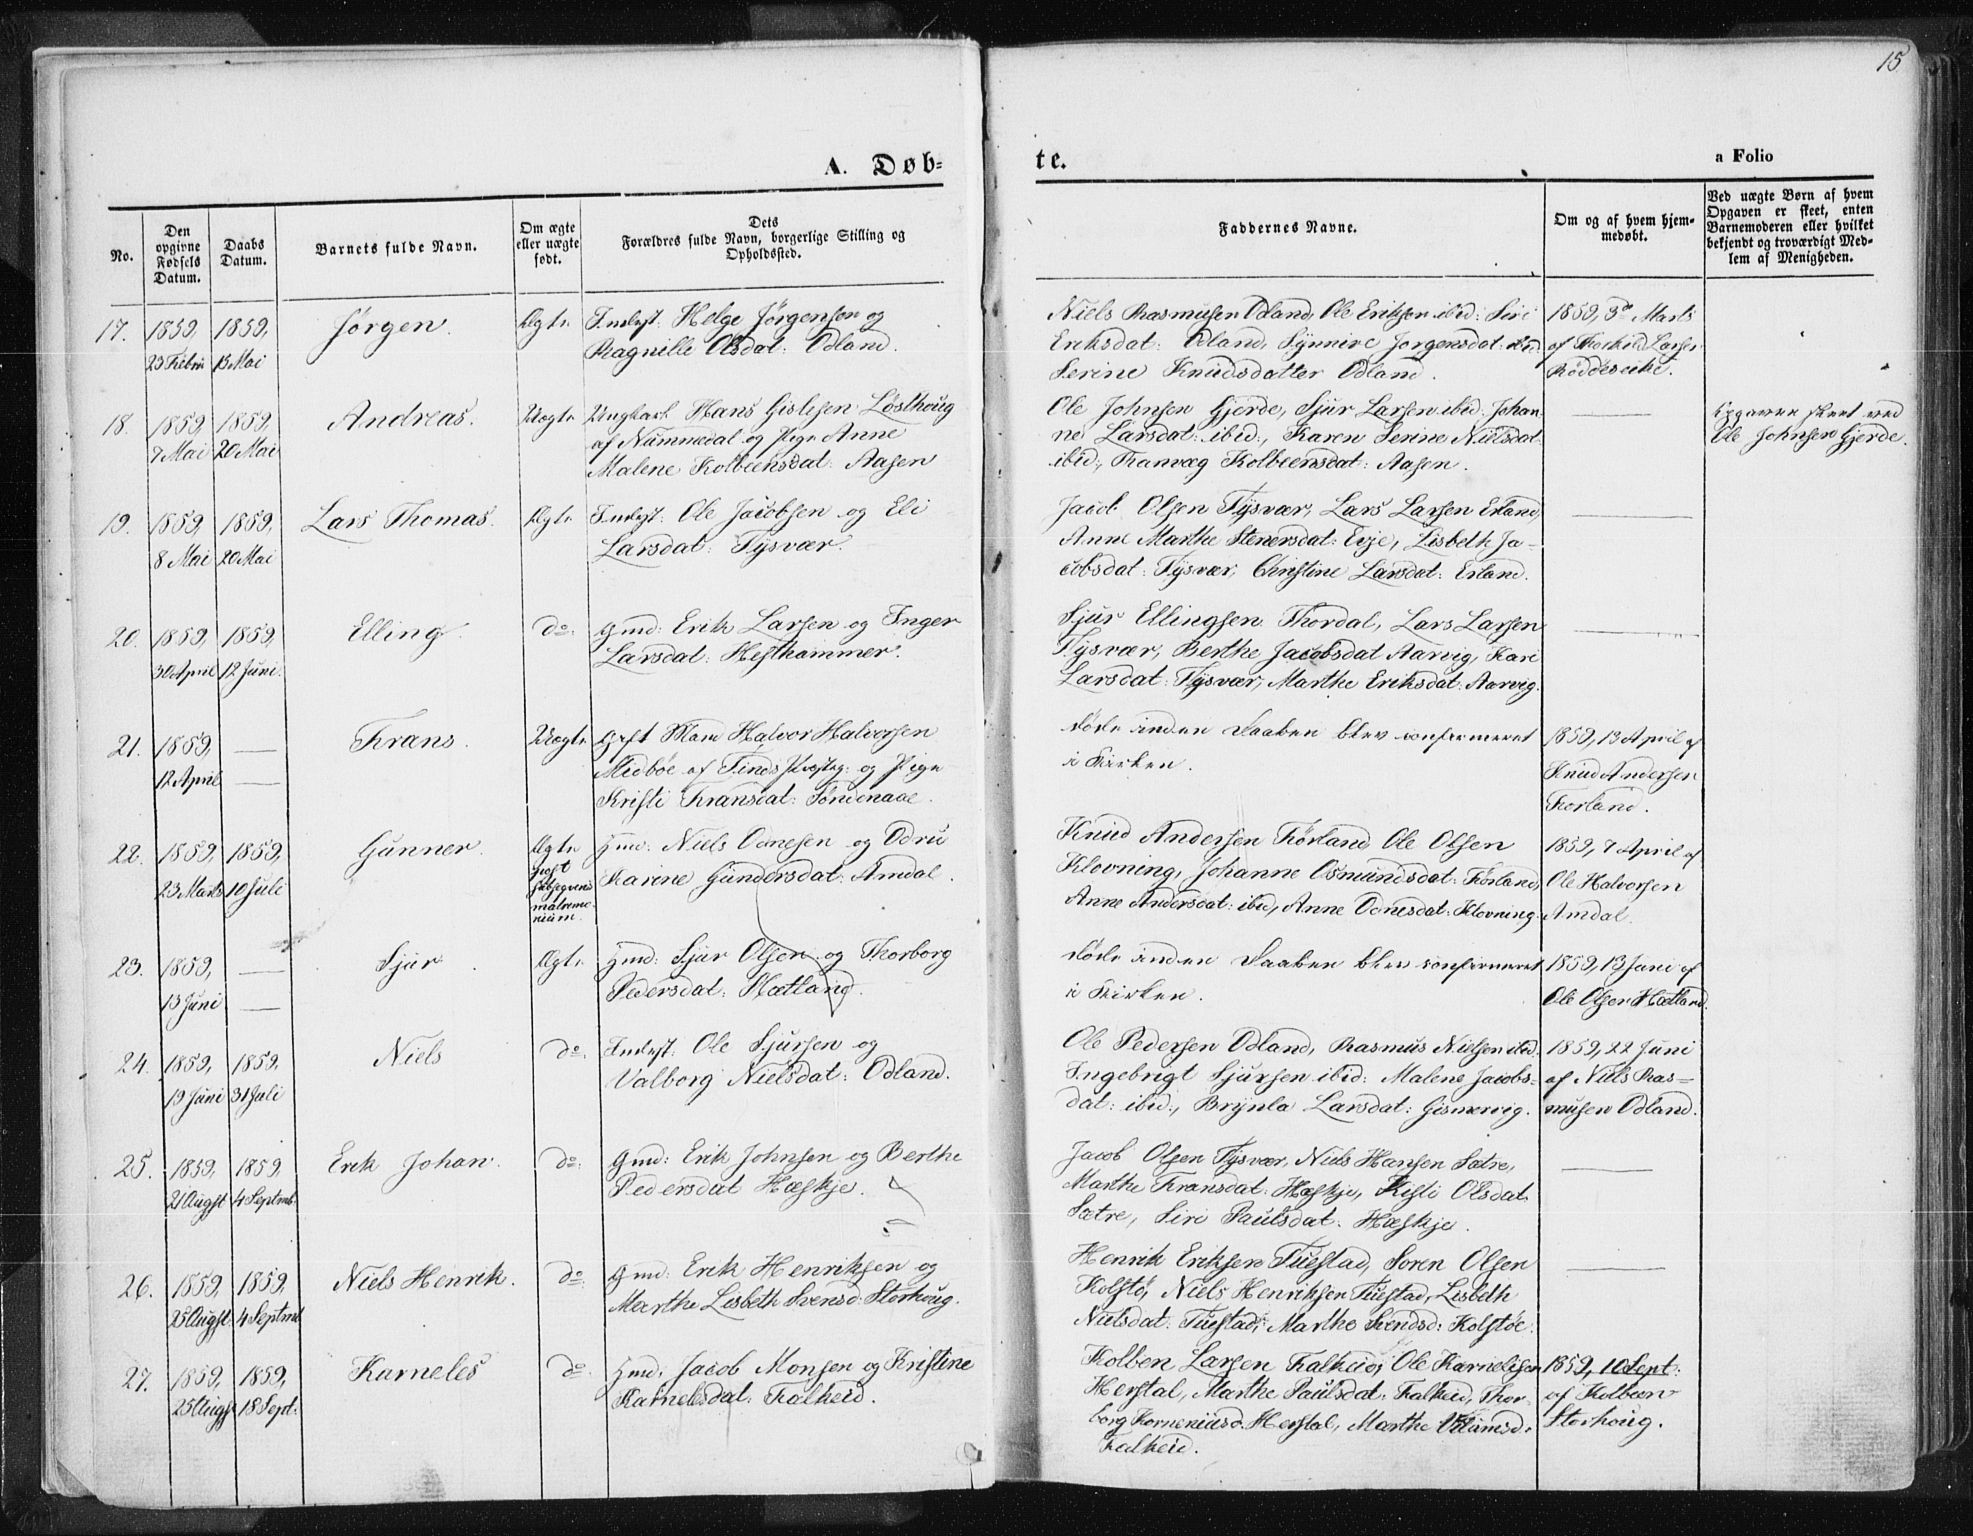 15
A. Døb-
te.
a Folio
No.
Den opgivne Fødsels Datum.
Daabs Datum.
Barnets fulde Navn.
Om ægte eller uægte født.
Dets Forældres fulde Navn, borgerlige Stilling og Opholdssted.
Faddernes Navne.
Om og af hvem hjem-
medøbt.
Ved uægte Børn af hvem
Opgaven er skeet, enten
Barnemoderen eller hvilket
bekjendt og troværdigt Med-
lem af Menigheden.
17. 1859, 1859, Jørgen. Ægte Inderst: Helge Jørgensen og
23 Febru 15 Mai Ragnille Olsdat: Odland.
Niels Rasmusen Odland, Ole Eriksen ibid: Siri
Eriksdat: Odland, Synnive Jørgensdat: ibid
Serine Knudsdatter Odland.
1859, 3de Marts
af Thorkild Larsen
18. 1859 1859, Andreas. Uægte Ungkarl Hans Gislesen Løsthoug
7 Mai 20 Mai af Nammedal og Pige Anne
Malene Kolbeensdat: Aasen
Ole Johnsen Gjerde, Sjur Larsen ibid: Johan-
ne Larsdat: ibid:, Karen Serine Nielsdat:
ibid:, Tranvæg Kolbeensdat: Aasen.
Opgaven skeet ved
Ole Johnsen Gjerde.
19. 1859, 1859, Lars Thomas. Ægte Inderst: Ole Jacobsen og Eli
8 Mai 20 Mai Larsdat: Tysvær.
Jacob Olsen Tysvær, Lars Larsen Erland,
Anne Marthe Stenersdat: Eeje, Lisbeth Ja-
cobsdat: Tysvær, Christine Larsdat: Erland.
20. 1859, 1859, Elling. do: Gmd: Erik Larsen og Inger
30 April 12 Juni. Larsdat: Hesthammer.
Sjur Ellingsen Thordal, Lars Larsen
Tysvær, Berthe Jacobsdat Aarvig, Kari
Larsdat: Tysvær, Marthe Eriksdat: Aarvig.
21. 1859, — Frans. Uægte Gift Mand Halvor Halvorsen
12 April — Midbøe af Finds Præstg: og Pige
Kristi Fransdat: Søndenaae.
døde inden Daaben blev confirmeret
i Kirken.
1859, 13 April af
Knud Andersen
Førland.
22. 1859, 1859, Gunner. Ægte Gmd: Niels Odnesen og Odru
23 Marts 10 Juli post Karine Gundersdat: Amdal.
subsequens
matrimo-
nium.
Knud Andersen Førland Ole Olsen
Klovning, Johanne Osmundsdat: Førland,
Anne Andersdat: ibid, Anne Odnesdat: Klovning.
1859, 7 April af
Ole Halvorsen
Amdal.
23. 1859, — Sjur. Ægte Gmd: Sjur Olsen og Thorborg
13 Juni — Pedersdat: Hætland.
døde inden Daaben blev confirmeret
i Kirken.
1859, 13 Juni af
Ole Olsen Hætland.
24. 1859, 1859, Niels do: Inderst: Ole Sjursen og
19 Juni 31 Juli Valborg Nielsdat: Odland.
Ole Pedersen Odland, Rasmus Nielsen ibid:
Ingebrigt Sjursen ibid: Malene Jacobs-
dat: ibid:, Brynla Larsdat: Gismervig.
1859, 22 Juni
af Niels Ras-
musen Odland.
25. 1859, 1859, Erik Johan. do: Gmd: Erik Johnsen og Berthe
21 Augst 4 Septmb. Pedersdat Hæskje.
Jacob Olsen Tysvær, Niels Hansen Sætre,
Marthe Fransdat: Hæskje, Kisti Olsdat.
Sætre, Siri Paulsdat: Hæskje.
26. 1859, 1859, Niels Henrik. do: Gmd: Erik Henriksen og
25 Augst 4 Septmb Marthe Lisbeth Svensd: Storhoug.
Henrik Eriksen Tuestad, Soren Olsen
Kolstø, Niels Henriksen Tuestad, Lisbeth
Nielsdat: Tuestad, Marthe Svendsd: Kolstøe.
27. 1859, 1859, Karneles do: Gmd: Jacob Monsen og Kristine
25 Augst 18 Sept: Karnelesdat: Falkeid.
Kolben Larsen Falkeid, Ole Karnelisen
Herstal, Marthe Paulsdat: Falkeid, Thor-
borg Korneniusd: Herstal, Marthe
Falkeid.
1859, 10 Sept:
af Kolbeen
Storhoug.